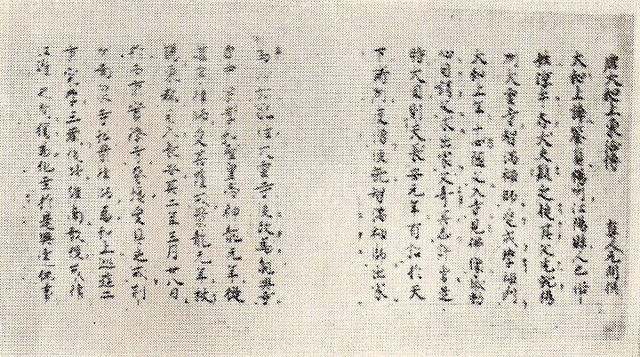 唐大和上東征傳　真人元開撰
大和上諱鑒真揚州江陽縣人也俗
姓淳于齊大夫髠之後其父先就揚
州大雲寺智滿禪師受戒學禪門
大和上年十四隨父入寺見佛像感動
心因請父求出家父奇其志許焉是
時大周則天長安元年有詔於天
下諸州度僧便就智滿禪師出家
為沙弥配住大雲寺後改為龍興寺
唐中宗孝和聖皇帝神龍元年從
道岸律師受菩薩戒景龍元年杖
錫東都因入長安其二年三月廿八日
於西京實際寺登壇受具足戒荊
州南泉寺弘景律師為和上巡遊二
京究學三藏後歸淮南教授戒律
江淮之間獨為化主於是興建佛事